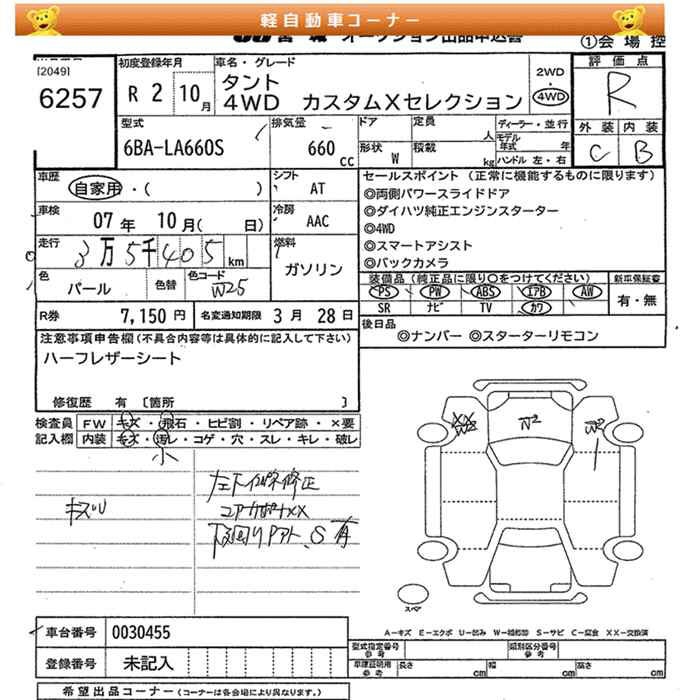 軽自動車コーナー
オークション出品申込書
①会場控
[2049]
6257
初度登録年月
R 2 10月
車名・グレード
タント
4WD カスタムXセレクション
2WD
・
4WD
評価点
R
外装 内装
C B
型式
6BA-LA660S
排気量
660 cc
ドア
形状 W
定員 人
積載 kg
ディーラー・並行
モデル年式 年
ハンドル 左・右
車歴
自家用・( )
シフト AT
車検
07年 10月( 日)
冷房 AAC
走行
3万5千405 km
燃料
ガソリン
色
パール
色替
色コード
W25
セールスポイント (正常に機能するものに限ります)
◎両側パワースライドドア
◎ダイハツ純正エンジンスターター
◎4WD
◎スマートアシスト
◎バックカメラ
装備品(純正品に限り○をつけてください)
PS PW ABS エアB AW
SR ナビ TV カワ
新車保証書
有・無
R券 7,150円 名変通知期限 3月 28日
後日品
◎ナンバー ◎スターターリモコン
注意事項申告欄(不具合内容等は具体的に記入して下さい)
ハーフレザーシート
修復歴 有 [箇所 ]
検査員 FW キズ・飛石・ヒビ割・リペア跡・×要
記入欄 内装 キズ・汚レ・コゲ・穴・スレ・キレ・破レ
小
キズU
修正
コアサポートXX
下回り S有
XX
W2
W2
W2
スペア
A-キズ E-エクボ U-凹み W-補修跡 S-サビ C-腐食 XX-交換済
車台番号 0030455
登録番号 未記入
型式指定番号
参考
類別区分番号
参考
車庫証明用
参考
長さ cm
幅 cm
高さ cm
希望出品コーナー(コーナーは各会場により異なります。)